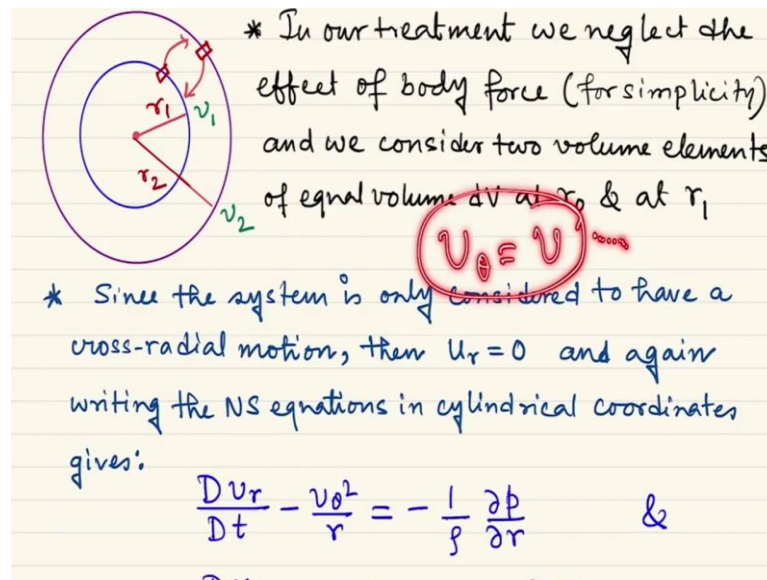 * In our treatment we neglect the
effect of body force (for simplicity)
and we consider two volume elements
of equal volume dV at r₂ & at r₁
r₁ υ₁
r₂
υ₂
υ_θ = υ .....
* Since the system is only considered to have a
cross-radial motion, then U_r = 0 and again
writing the NS equations in cylindrical coordinates
gives:
Dυ_r/Dt - υ_θ²/r = - 1/ρ ∂p/∂r &